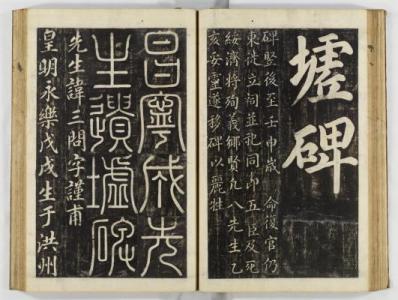 墟碑
碑竪後至壬申歲 命復官仍
東徙立祠並祀同五臣及死
將殉義鄉賢凡八先生乙
亥安靈遂移碑以麗牲
昌寧成先
生遺墟碑
先生諱三問字謹甫
皇明永樂戊戌生于洪州